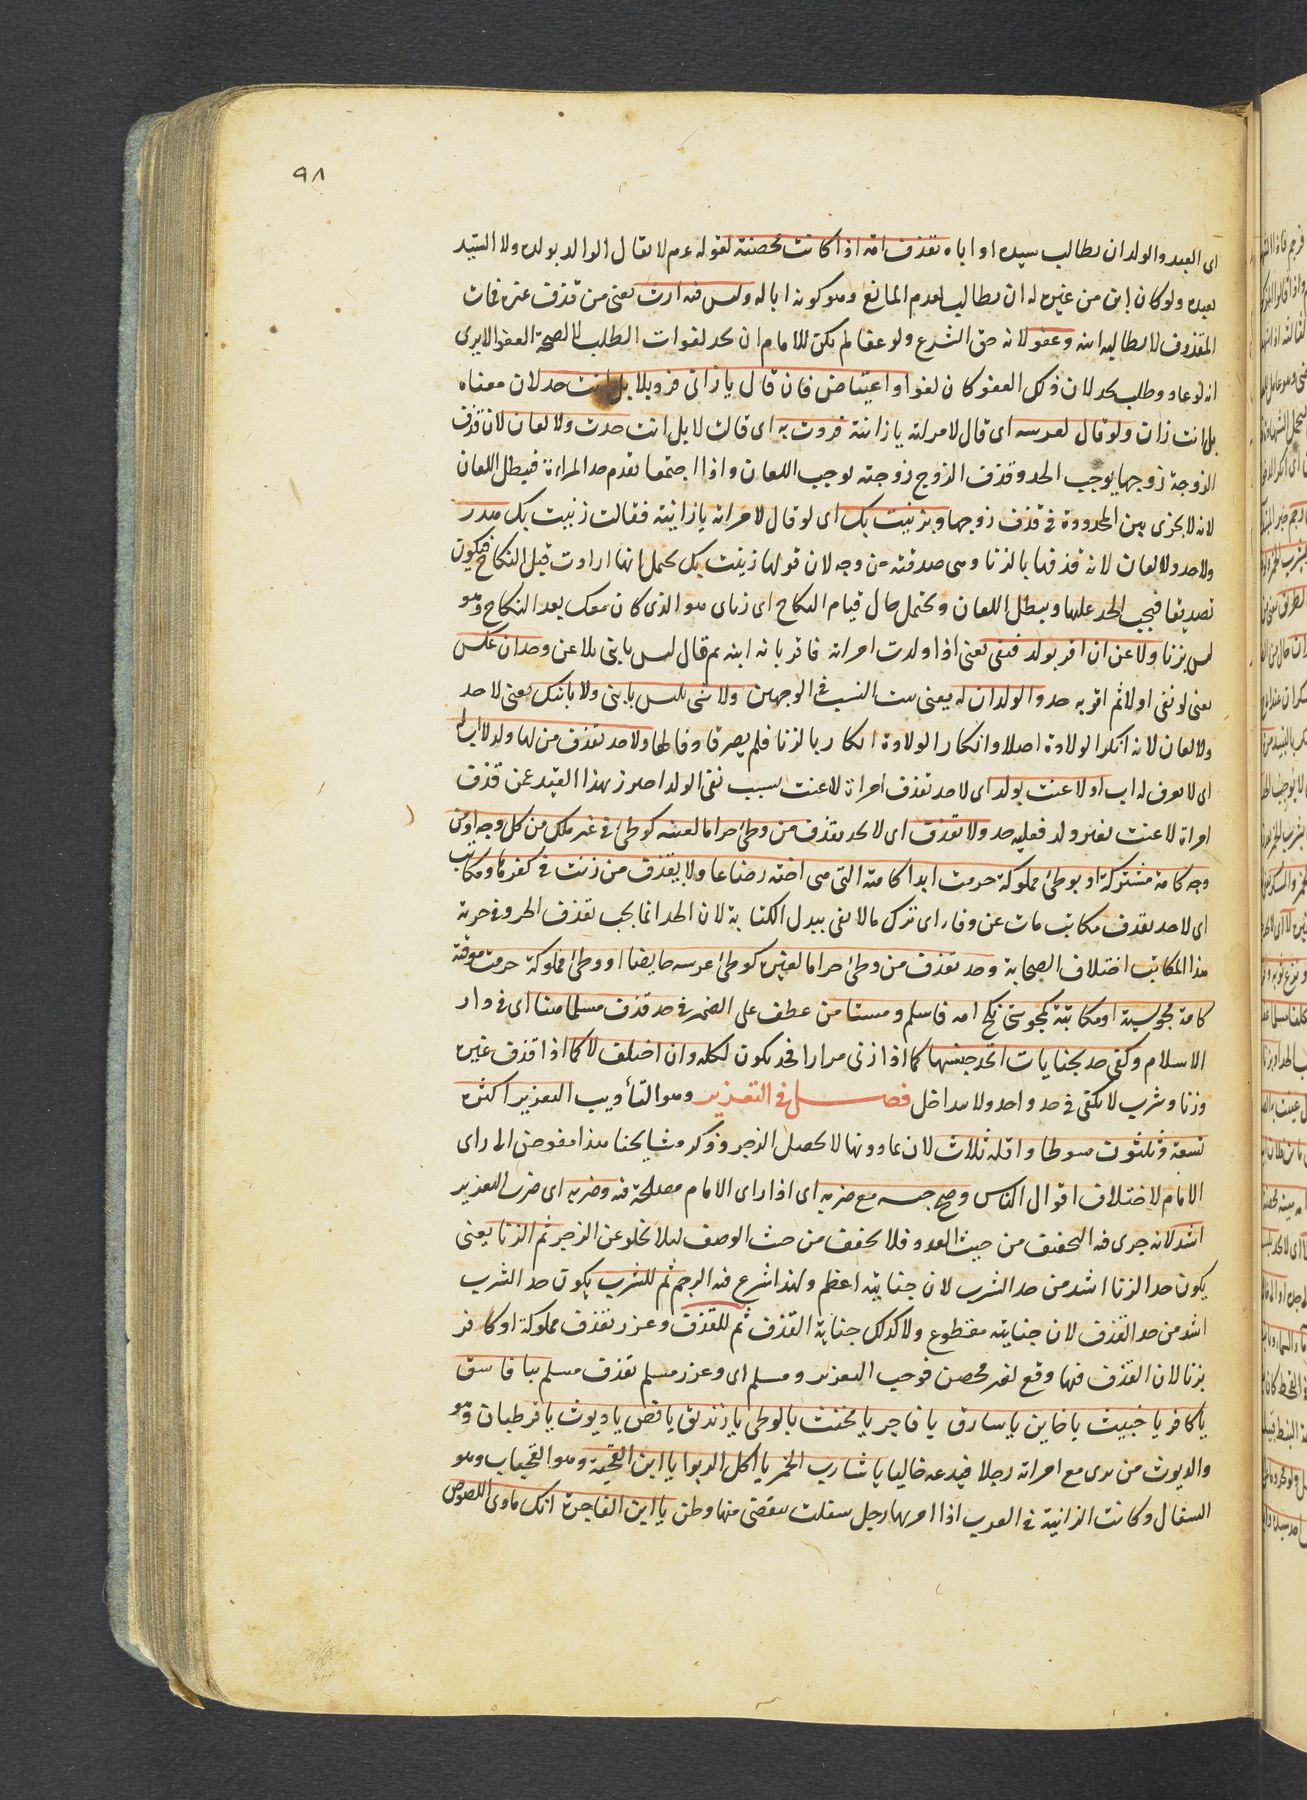 ٩٨
اى العبد والولد ان يطالب سيده او اباه بقذف امه اذا كانت محصنة لقوله عم لا يقال الوالد بولده ولا السيد
بعبده ولو كان ابن من غيره له ان يطالب لعدم المانع وهو كونه ابا له وليس فيه ارث يعنى من قذف غيره فمات
المقذوف لا يطالبه ابنه وعفو لانه حق الشرع ولو عفا لم يكن للامام ان يحد لفوات الطلب لا لصحة العفو الا يرى
انه لو عاد وطلب يحد لان ذلك العفو كان لغوا واعتياض فان قال يا زانى فرد بلا بل انت حد لان معناه
بل انت زان ولو قال لعرسه اى قال لامراته يا زانية فردت به اى قالت لا بل انت حدت ولا لعان لان قذف
الزوجة زوجها يوجب الحد وقذف الزوج زوجته يوجب اللعان واذا اجتمعا تقدم حد المراءة فيبطل اللعان
لانه لا يجزى بين المحدودة فى قذف زوجها وبزنيت بك اى لو قال لامراته يا زانية فقالت زنيت بك هدر
ولا حد ولا لعان لانه قذفها بالزنا وهى صدقته من وجه لان قولها زنيت بك يحتمل انها ارادت قبل النكاح فيكون
تصديقا فيجب الحد عليها ويبطل اللعان ويحتمل حال قيام النكاح اى زناى هو الذى كان معك بعد النكاح وهو
ليس بزنا ولاعن ان اقر بولد فنفى يعنى اذا ولدت امراته فاقر بانه ابنه ثم قال ليس بابنى يلاعن وحد ان عكس
يعنى لو نفى اولا ثم اقر به حد والولدان له يعنى يثبت النسب فى الوجهين ولا شى بليس بابنى ولا بابنك يعنى لا حد
ولا لعان لانه انكر الولادة اصلا وانكار الولادة انكار بالزنا فلم يصر قاذفا ولا حد بقذف من لها ولد لا اب له
اى لا يعرف له اب او لاعنت بولد اى لا حد بقذف امراة لاعنت بسبب نفى الولد احترز بهذا القيد عن قذف
امراة لاعنت بغير ولد فعليه حد ولا بقذف اى لا يحد بقذف من وطئ حراما لعينه كوطئ فى غير ملك من كل وجه او من
وجه كامة مشتركة او بوطئ مملوكة حرمت ابدا كامته التى هى اخته رضاعا ولا بقذف من زنت فى كفرها ومكاتب
اى لا حد بقذف مكاتب مات عن وفاء اى ترك ما لا يفى ببدل الكتابة لان الحد انما يجب بقذف الحر وفى حرية
هذا المكاتب اختلاف الصحابة وحد بقذف من وطئ حراما لغيره كوطئ عرسه حايضا او وطئ مملوكة حرمت موقتة
كامة مجوسية او مكاتبة كمجوسى نكح امه فاسلم ومستامن عطف على الضمير فى حد قذف مسلما هنا اى فى دار
الاسلام وكفى حد بجنايات اتحد جنسها كما اذا زنى مرارا فحد يكون لكله وان اختلف لا كما اذا قذف غيره
وزنا وشرب لا يكفى فى حد واحد ولا يتداخل فصل فى التعزير وهو التأديب التعزير اكثره
تسعة وثلثون سوطا واقله ثلاث لان ما دونها لا يحصل الزجر وذكر مشايخنا هذا مفوض الى راى
الامام لاختلاف اقوال الناس وصح حبسه مع ضربه اى اذا راى الامام مصلحة فيه وضربه اى ضرب التعزير
اشد لانه جرى فيه التخفيف من حيث العدد فلا يخفف من حيث الوصف ليلا يخلو عن الزجر ثم الزنا يعنى
يكون حد الزنا اشد من حد الشرب لان جنايته اعظم ولهذا شرع فيه الرجم ثم للشرب يكون حد الشرب
اشد من حد القذف لان جنايته مقطوع ولا كذلك جناية القذف ثم للقذف وعزر بقذف مملوكة او كافر
بزنا لان القذف فيها وقع لغير محصن فوجب التعزير ومسلم اى وعزر مسلم بقذف مسلم بيا فاسق
يا كافر يا خبيث يا خاين يا سارق يا فاجر يا مخنث يا لوطى يا زنديق يا لص يا ديوث يا قرطبان وهو
والديوث من يرى مع امراته رجلا فيدعه خاليا يا شارب الخمر يا اكل الربوا يا ابن القحبة وهو القحاب وهو
السعال وكانت الزانية فى العرب اذا مر بها رجل سعلت ليقضى منها وطر يا ابن الفاجرة انك ماوى اللصوص